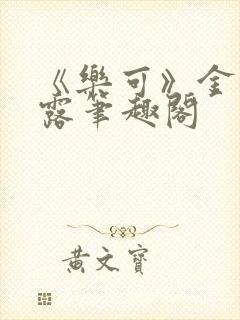 《樂可》金
露筆趣閣
黃文寶